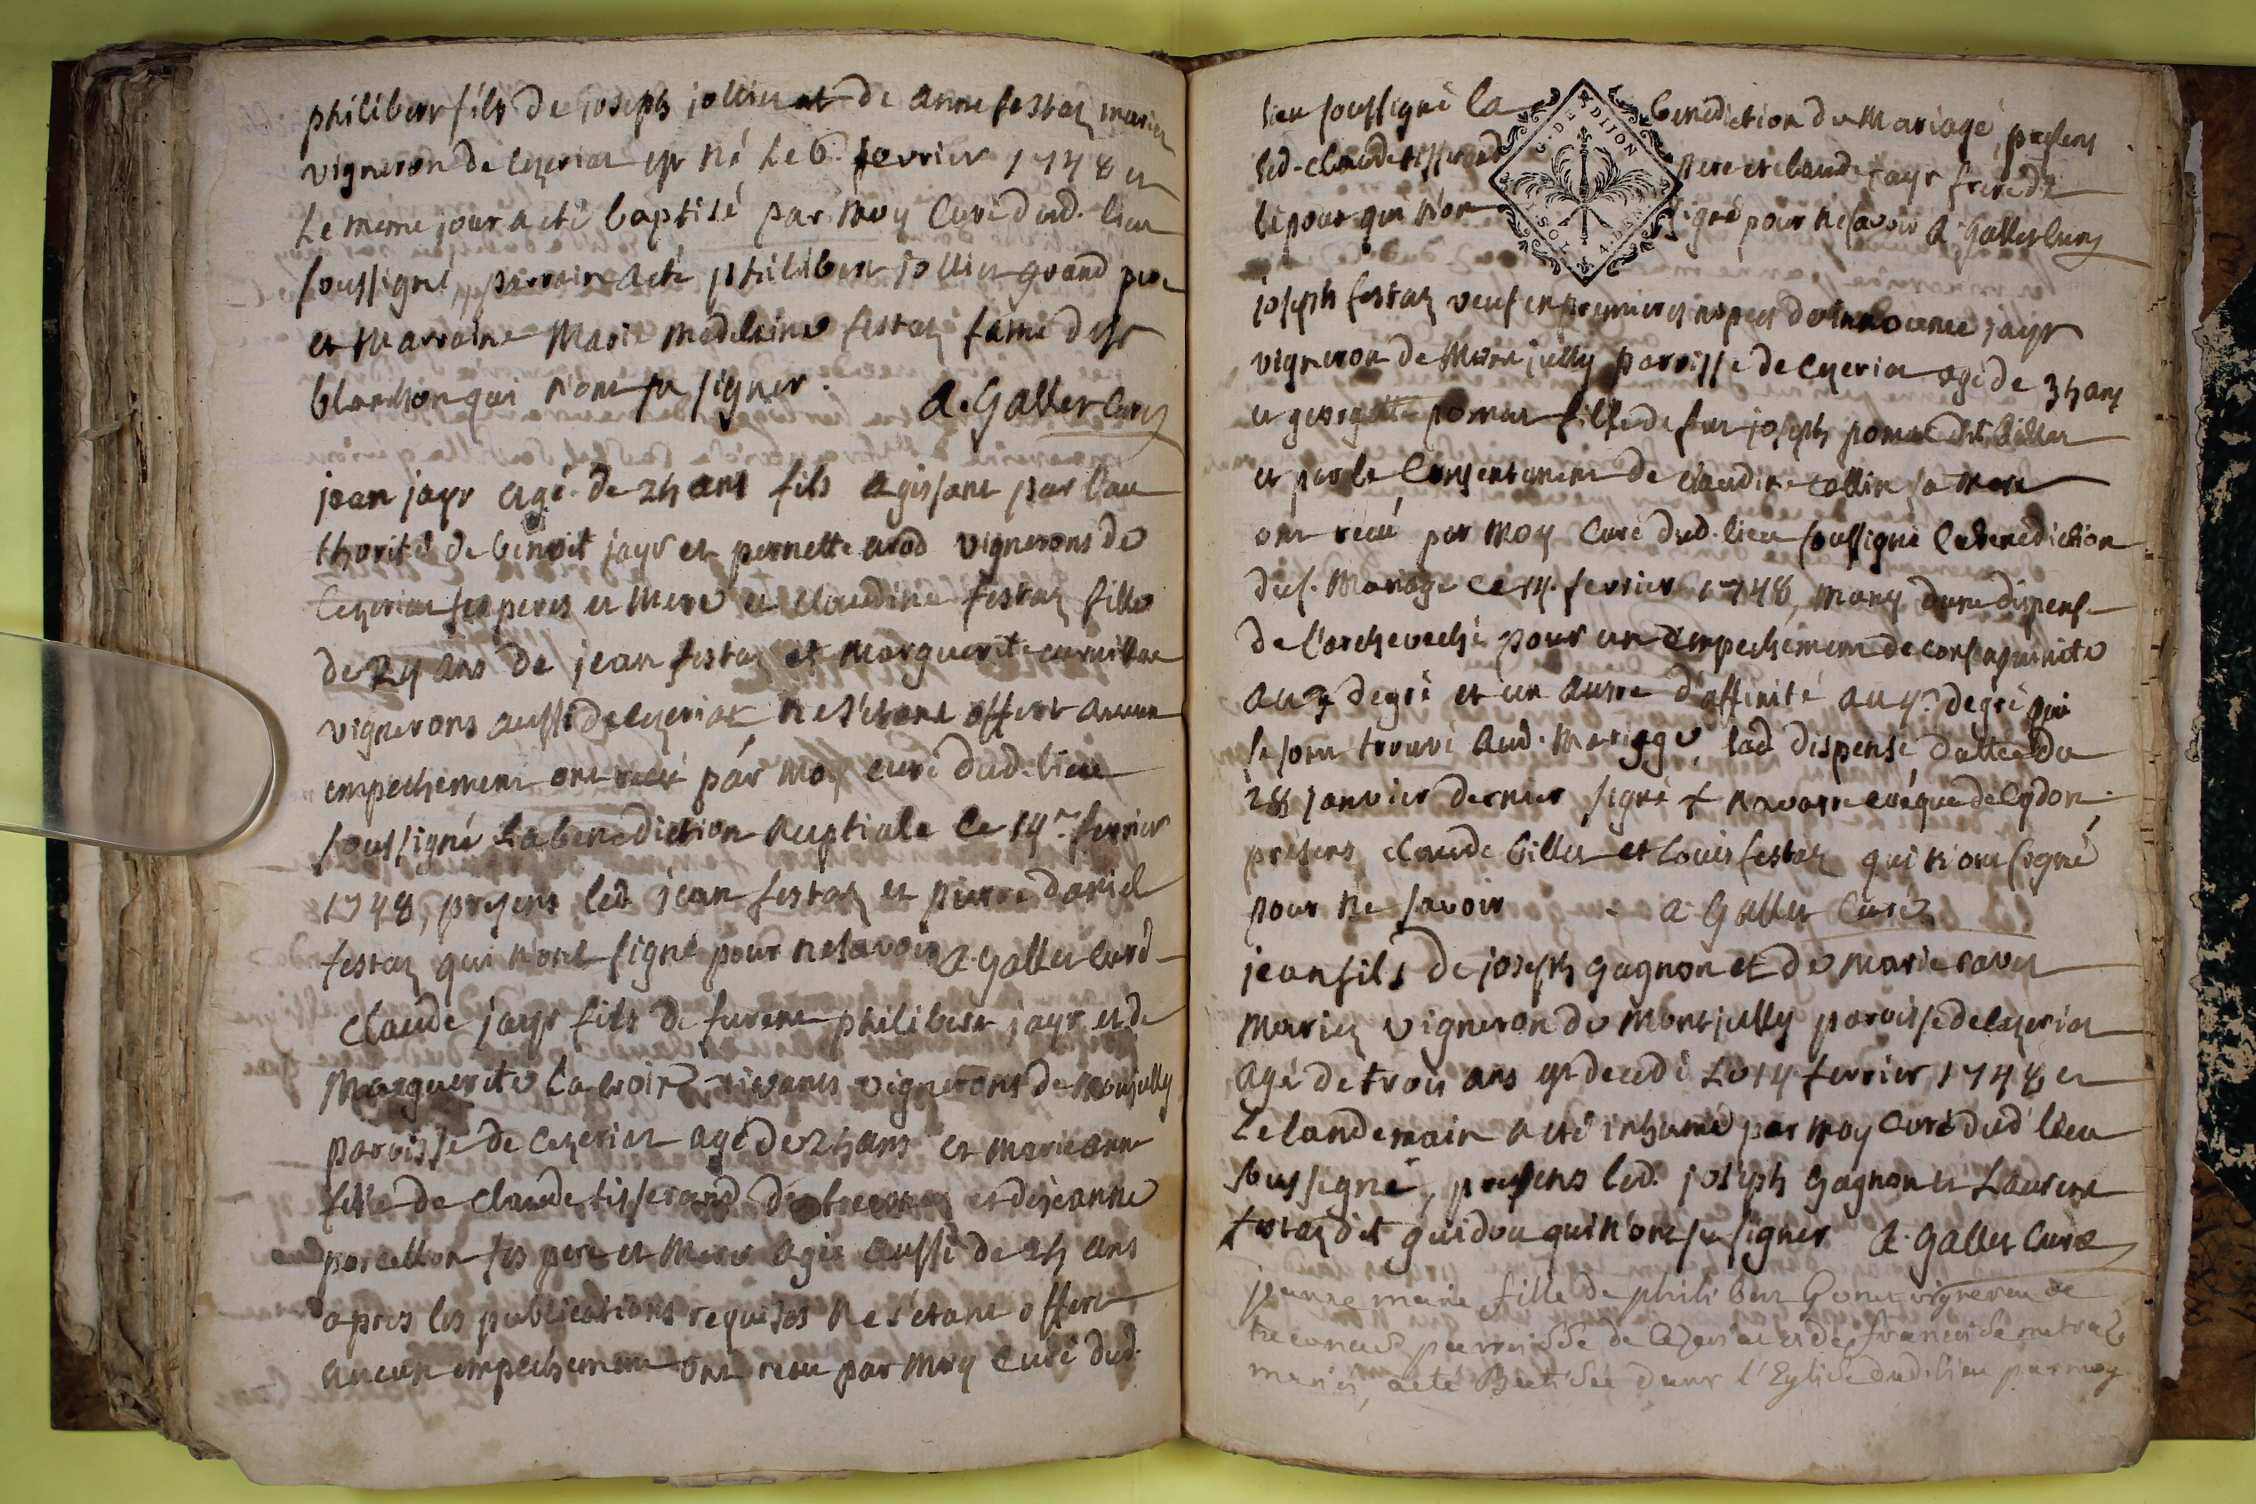 philibert fils de joseph jollier et de anne festaz mariez
vigneron de Ceyzeriat est né Le 6. fevrier 1748 et
Le meme jour a eté baptisé par moy Curé dud. lieu
soussigné, parrain a eté philibert jollier grand pere
et Marraine Marie Medeleine festaz fame de
blanchon qui n'ont su signer. A. Gallet Curé
jean jayr agé de 25 ans fils agissant par l'au
thorité de benoit jayr et pernette vignerons de
Ceyzeriat ses peres et Mere et Claudine festaz fille
de 24 ans de jean festaz et Marguerite
vignerons aussi de Ceyzeriat Ne s'etant offert aucun
empechement ont recu par moy curé dud. lieu
soussigné La benediction Nuptiale Ce 14. fevrier
1748, presens led jean festaz et pierre daniel
festaz qui n'ont signé pour ne savoir A. Gallet Curé
Claude jayr fils de philibert jayr et de
Marguerite vivants vignerons de Monjully
paroisse de Ceyzeriat agé de 25 ans et Marie anne
fille de Claude tisserand de treconnaz et de jeanne
porcellon ses pere et Mere agée aussi de 25 ans
apres les publications requises Ne s'etant offert
aucun empechement ont recu par moy Curé dud.
lieu soussigné la benediction du Mariage, presens
led. Claude tisserand pere et Claude jayr frere de
l'epoux qui n'ont signé pour ne savoir A. Gallet Curé
G. DE DIJON
joseph festaz veuf en premieres nopces de innocente jayr
vigneron de Montjully paroisse de Ceyzeriat agé de 35 ans
et georgette fille de feu joseph dit billet
et par le Consentement de Claudine collin sa mere
ont recu par moy Curé dud. lieu soussigné la benediction
du s. Mariage Ce 14. fevrier 1748, Munis d'une dispense
de l'archeveché pour un Empechement de consanguinité
au degré et un autre d'affinité au 4. degré qui
se sont trouvé aud. Mariage, lad dispense dattée du
28 janvier dernier signé + Navarre evéque de Cydon.
présens claude billet et louis festaz qui n'ont signé
pour ne savoir A. Gallet Curé
jean fils de joseph Gagnon et de Marie ravet
Mariez vigneron de Montjully paroisse de Ceyzeriat
Agé de trois ans est decedé Le 14 fevrier 1748 et
Le landemain a eté inhumé par moy Curé dud lieu
soussigné, presens led. joseph Gagnon et Laurent
festaz dit guidou qui n'ont su signer A. Gallet Curé
jeanne marie fille de philibert Gonet vigneron de
treconas parroisse de Ceyzeriat et de francoise
mariés, a eté Batisée dans l'Eglise dud. lieu par moy